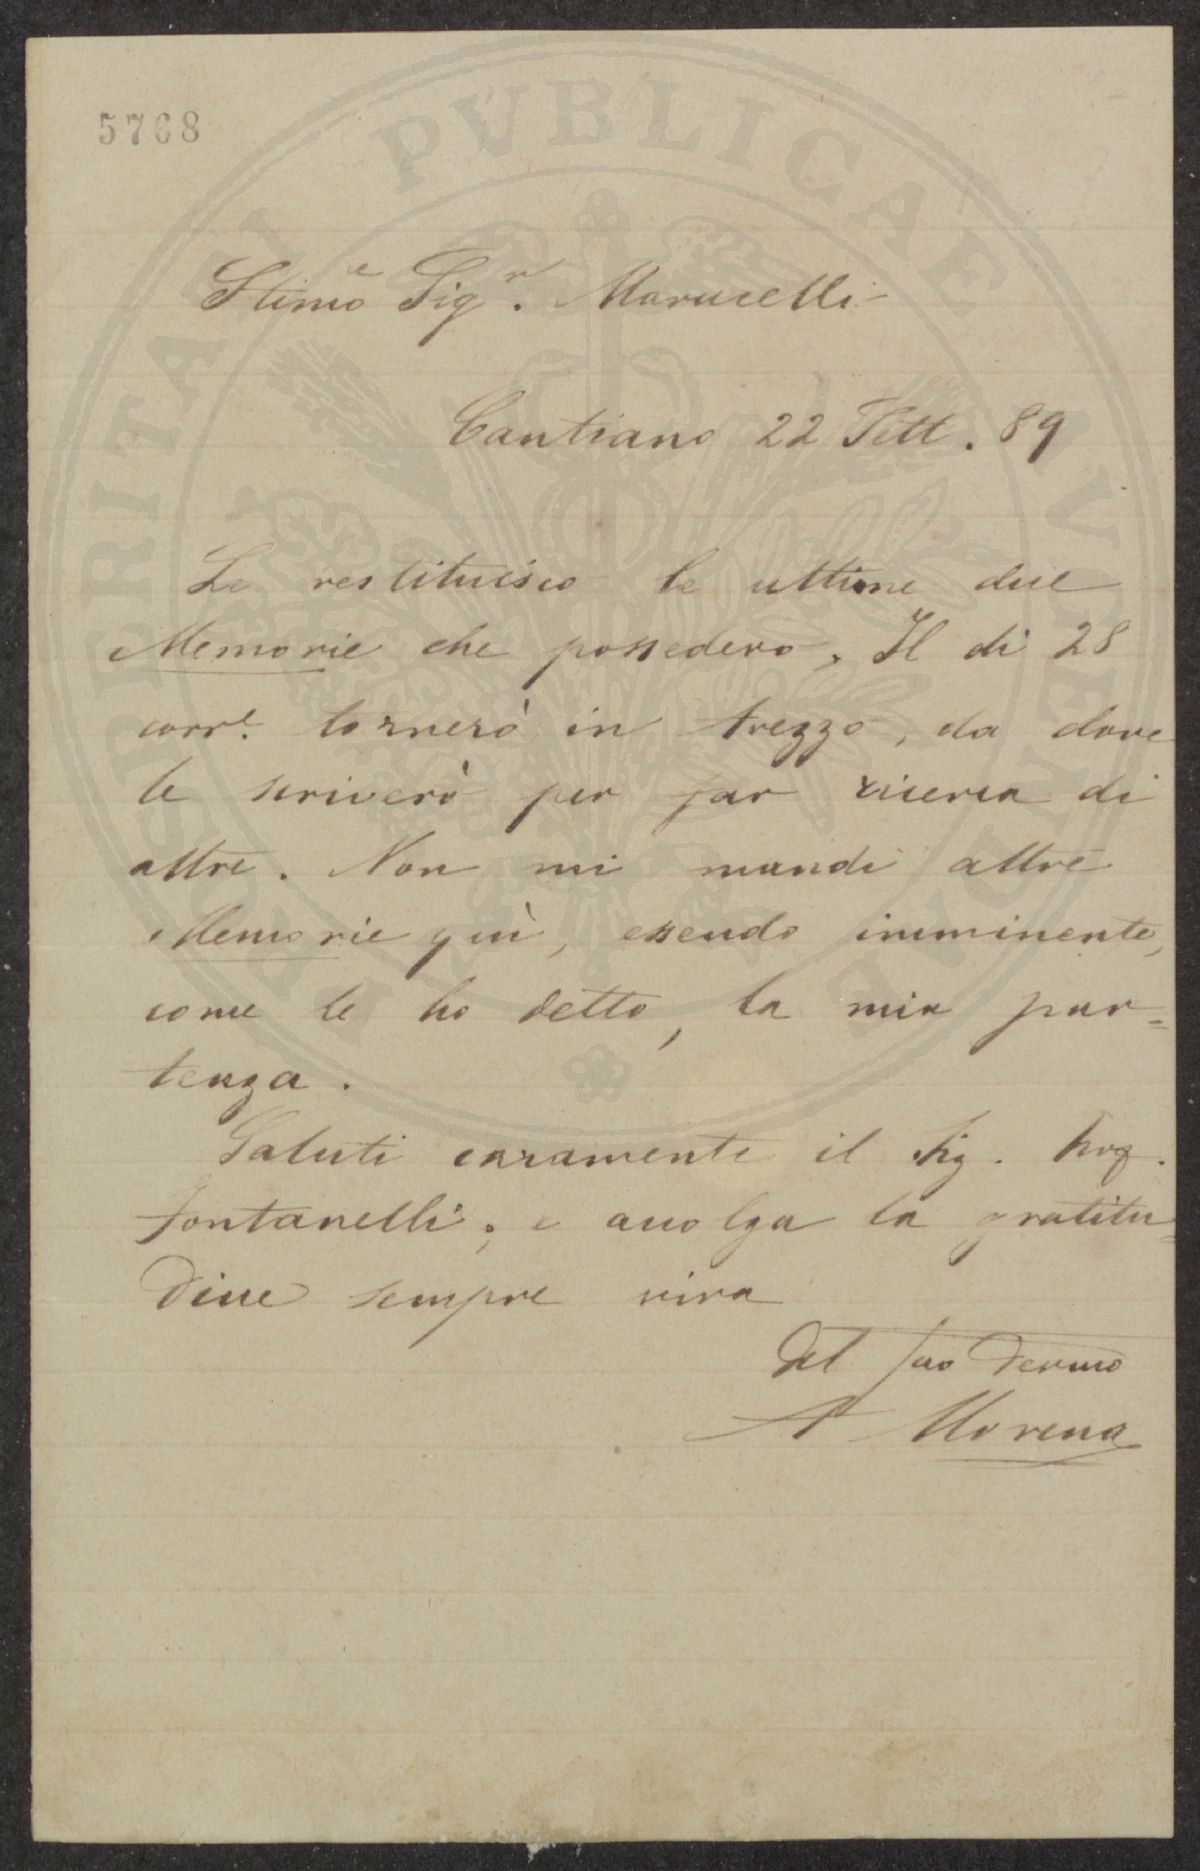 5768
PROSPERITATI PUBLICAE AUGENDAE
Stimo Sigr. Marucelli
Cantiano 22 Sett. 89
Le restituisco le ultime due
Memorie che possedevo. Il dì 28
corre. tornerò in Arezzo, da dove
le scriverò per far ricerca di
altre. Non mi mandi altre
Memorie quì, essendo imminente,
come le ho detto, la mia par=
tenza.
Saluti caramente il Sig. 
Fontanelli; e accolga la gratitu=
dine sempre viva
Del suo Devmo
A Morena